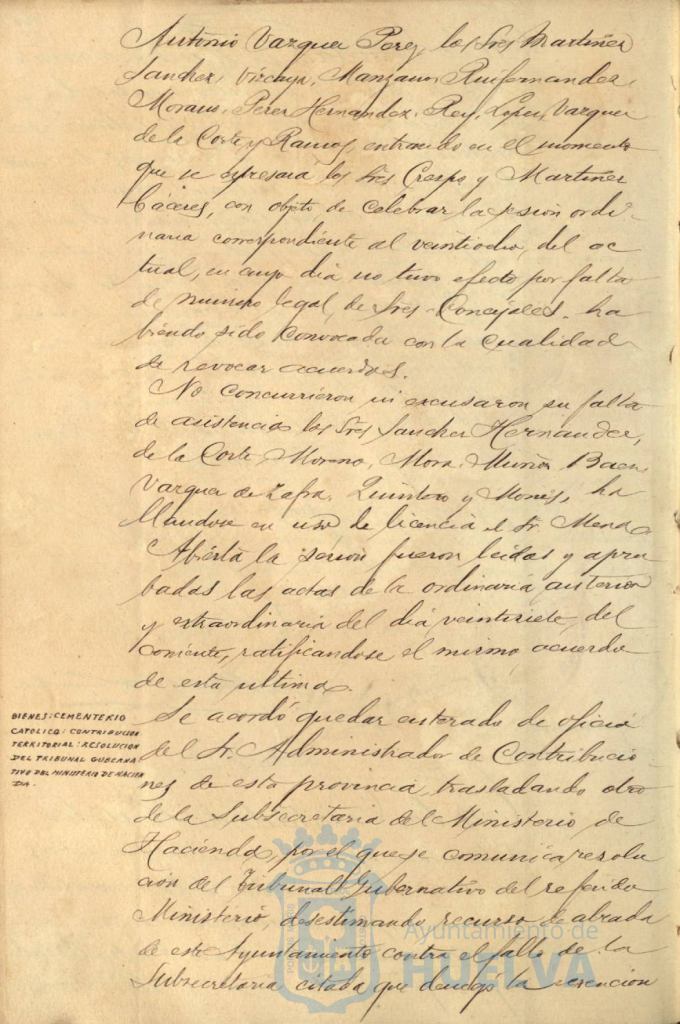 Antonio Vazquez Perez, los Sres Martinez
Sanchez, Vizcaya, Manzano, Ruifernandez,
Morano, Perez Hernandez, Rey, Lopez, Vazquez
de la Corte y Ramos, entrando en el momento
que se espresará los Sres Crespo y Martinez
Cáceres, con objeto de celebrar la sesion ordi-
naria correspondiente al veintiocho, del ac-
tual, en cuyo dia no tuvo efecto por falta
de numero legal, de Sres Concejales, ha
biendo sido convocada con la cualidad
de revocar acuerdos.
No concurrieron ni excusaron su falta
de asistencia los Sres Sanchez Hernandez,
de la Corte, Moreno, Mora, Muñoz, Baen,
Vazquez de Zafra, Quintero y Monis, ha
llandose en uso de licencia el Sr. Mena
Abierta la sesion fueron leidas y apro
badas las actas de la ordinaria, anterior
y extraordinaria del dia veintisiete, del
corriente, ratificandose el mismo, acuerdo
de esta ultima.
BIENES: CEMENTERIO
CATOLICO: CONTRIBUCION
TERRITORIAL: RESOLUCION
DEL TRIBUNAL GUBERNA
TIVO DEL MINISTERIO DE HACIEN
DA.
Se acordó quedar enterado de oficio
del Sr. Administrador de Contribucio-
nes de esta provincia, trasladando otro
de la Subsecretaria del Ministerio de
Hacienda, por el que se comunica resolu
ción del Tribunal Gubernativo del referido
Ministerio, desestimando recurso de alzada
de este Ayuntamiento contra el fallo de la
Subsecretaria citada que denegó la exención
Ayuntamiento de
HUELVA